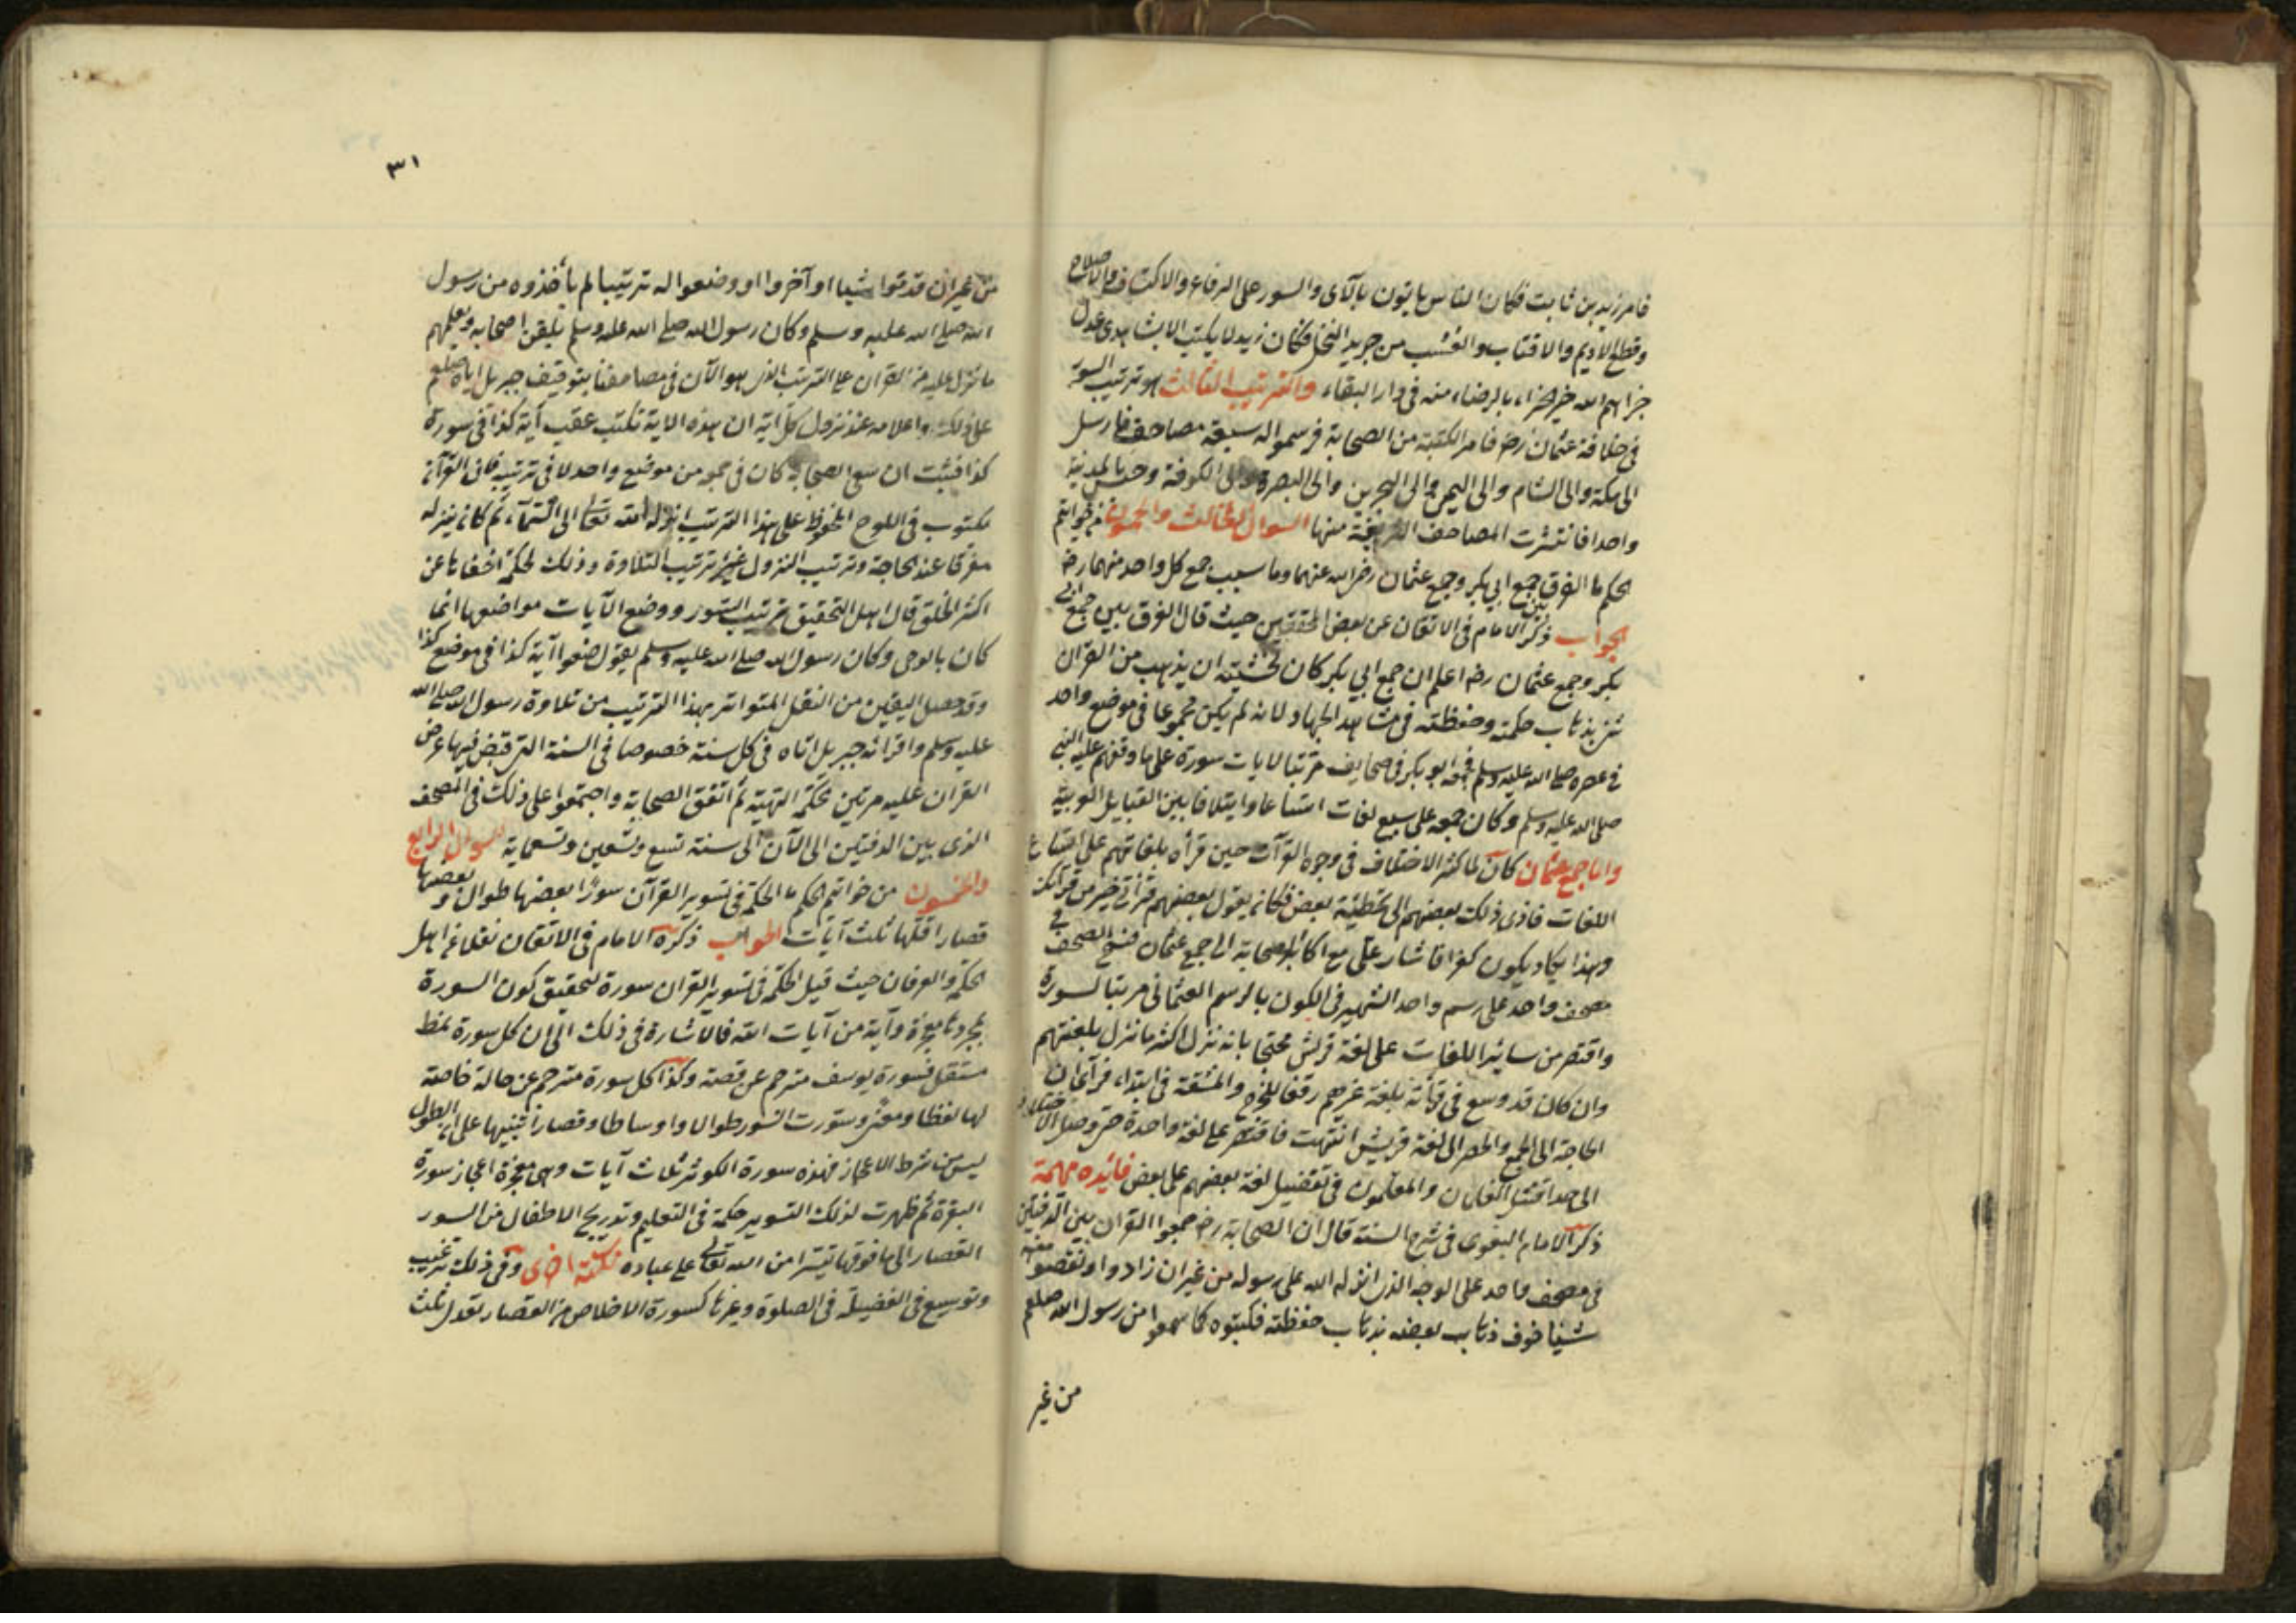 فامر زيد بن ثابت فكان الناس ياتون بالآى والسور على الرقاع والاكتاف والاضلاع
وقطع الاديم والاقتاب والعسب من جريد النخل فكان زيد لا يكتب الا بشاهدى عدل
جزاهم الله خير جزاء بالرضاء منه فى دار البقاء والترتيب الثالث هو ترتيب السور
فى خلافة عثمان رضه فامر الكتبة من الصحابة فرسموا له سبعة مصاحف فارسل
الى مكة والى الشام والى اليمن والى البحرين والى البصرة والى الكوفة وحبس بالمدينة
واحدا فانتشرت المصاحف الشريفة منها السوال الثالث والخمسون من خواتم
الحكم ما الفرق بين جمع ابي بكر وجمع عثمان رضى الله عنهما وما سبب جمع كل واحد منهما رضه
الجواب ذكر الامام فى الاتقان عن بعض المحققين حيث قال الفرق بين جمع ابي
بكر وجمع عثمان رضه اعلم ان جمع ابي بكر كان لخشية ان يذهب من القران
شئ بذهاب حملته وحفظته فى مشاهد الجهاد لانه لم يكن مجموعا فى موضع واحد
فى عصره صلى الله عليه وسلم فجمعه ابو بكر فى صحايف مرتبا لايات سورة على ما وقفهم عليه النبى
صلى الله عليه وسلم وكان جمعه على سبع لغات اتساعا وايتلافا بين القبايل العربية
واما جمع عثمان كان لما كثر الاختلاف فى وجوه القرآت حين قرأه بلغاتهم على اتساع
اللغات فادى ذلك بعضهم الى تخطئة بعض فكان يقول بعضهم قرأتى خير من قرآتك
وهذا يكاد يكون كفرا فاشار على مع اكابر الصحابة الى جمع عثمان فنسخ الصحف فى
مصحف واحد على رسم واحد الشهير فى الكون بالرسم العثمانى مرتبا لسورة
واقتصر من سائر اللغات على لغة قريش محتجا بانه نزل اكثر ما نزل بلغتهم
وان كان قد وسع فى قرائة بلغة غيرهم رفعا للحرج والمشقة فى ابتداء فرآى ان
الحاجة الى الجمع والحصر الى لغة قريش انتهت فاقتصر على لغة واحدة حتى وصل الاختلاف
الى حد اقتتل الغلمان والمعلمون فى تفضيل لغة بعضهم على بعض فائده مهمة
ذكر الامام البغوى فى شرح السنة قال ان الصحابة رضه جمعوا القران بين الدفتين
فى مصحف واحد على الوجه الذى انزله الله على رسوله من غير ان زادوا او نقصوا منه
شيئا خوف ذهاب بعضه بذهاب حفظته فكتبوه كما سمعوا من رسول الله صلعم
من غير
٣١
من غير ان قدموا شيئا او آخروا او وضعوا له ترتيبا لم يأخذوه من رسول
الله صلى الله عليه وسلم وكان رسول الله صلى الله عليه وسلم يلقن اصحابه ويعلمهم
ما نزل عليه من القران على الترتيب الذى هو الآن فى مصاحفنا بتوقيف جبريل اياه صلعم
على ذلك واعلامه عند نزول كل اية ان هذه الاية تكتب عقيب آية كذا فى سورة
كذا فثبت ان سعى الصحابة كان فى جمعه من موضع واحد لا فى ترتيبه فان القرآن
مكتوب فى اللوح المحفوظ على هذا الترتيب انزله الله تعالى الى السماء ثم كان ينزله
مفرقا عند الحاجة وترتيب النزول غير ترتيب التلاوة وذلك لحكمة اخفاها عن
اكثر الخلق قال اهل التحقيق ترتيب السور ووضع الآيات مواضعها انما
كان بالوحى وكان رسول الله صلى الله عليه وسلم يقول ضعوا آية كذا فى موضع كذا
وقد حصل اليقين من النقل المتواتر بهذا الترتيب من تلاوة رسول الله صلى الله
عليه وسلم واقرائه جبريل اياه فى كل سنة خصوصا فى السنة التى قبض فيها عرض
القران عليه مرتين لحكمة الهية ثم اتفق الصحابة واجتمعوا على ذلك فى المصحف
الذى بين الدفتين الى الآن الى سنة تسع وتسعين وتسعماية السوال الرابع
والخمسون من خواتم الحكم ما الحكمة فى تسوير القرآن سورا بعضها طوال وبعضها
قصار اقلها ثلث آيات الجواب ذكره الامام فى الاتقان نقلا عن اهل
الحكمة والعرفان حيث قيل الحكمة فى تسوير القران سورة لتحقيق كون السورة
بمجردها معجزة وآية من آيات الله فالاشارة فى ذلك الى ان كل سورة نمط
مستقل فسورة يوسف مترجم عن قصته وكذا كل سورة مترجم عن حالة خاصة
لها لفظا ومعنى وسورت السور طوالا واوساطا وقصارا تنبيها على ان الطول
ليس من شرط الاعجاز فهذه سورة الكوثر ثلاث آيات وهى معجزة اعجاز سورة
البقرة ثم ظهرت لذلك التسوير حكمة فى التعليم وتدريج الاطفال من السور
القصار الى ما فوقها تيسيرا من الله تعالى على عباده نكتة اخرى وفى ذلك ترغيب
وتوسيع فى الفضيلة فى الصلوة وغيرها كسورة الاخلاص من القصار تعدل ثلث